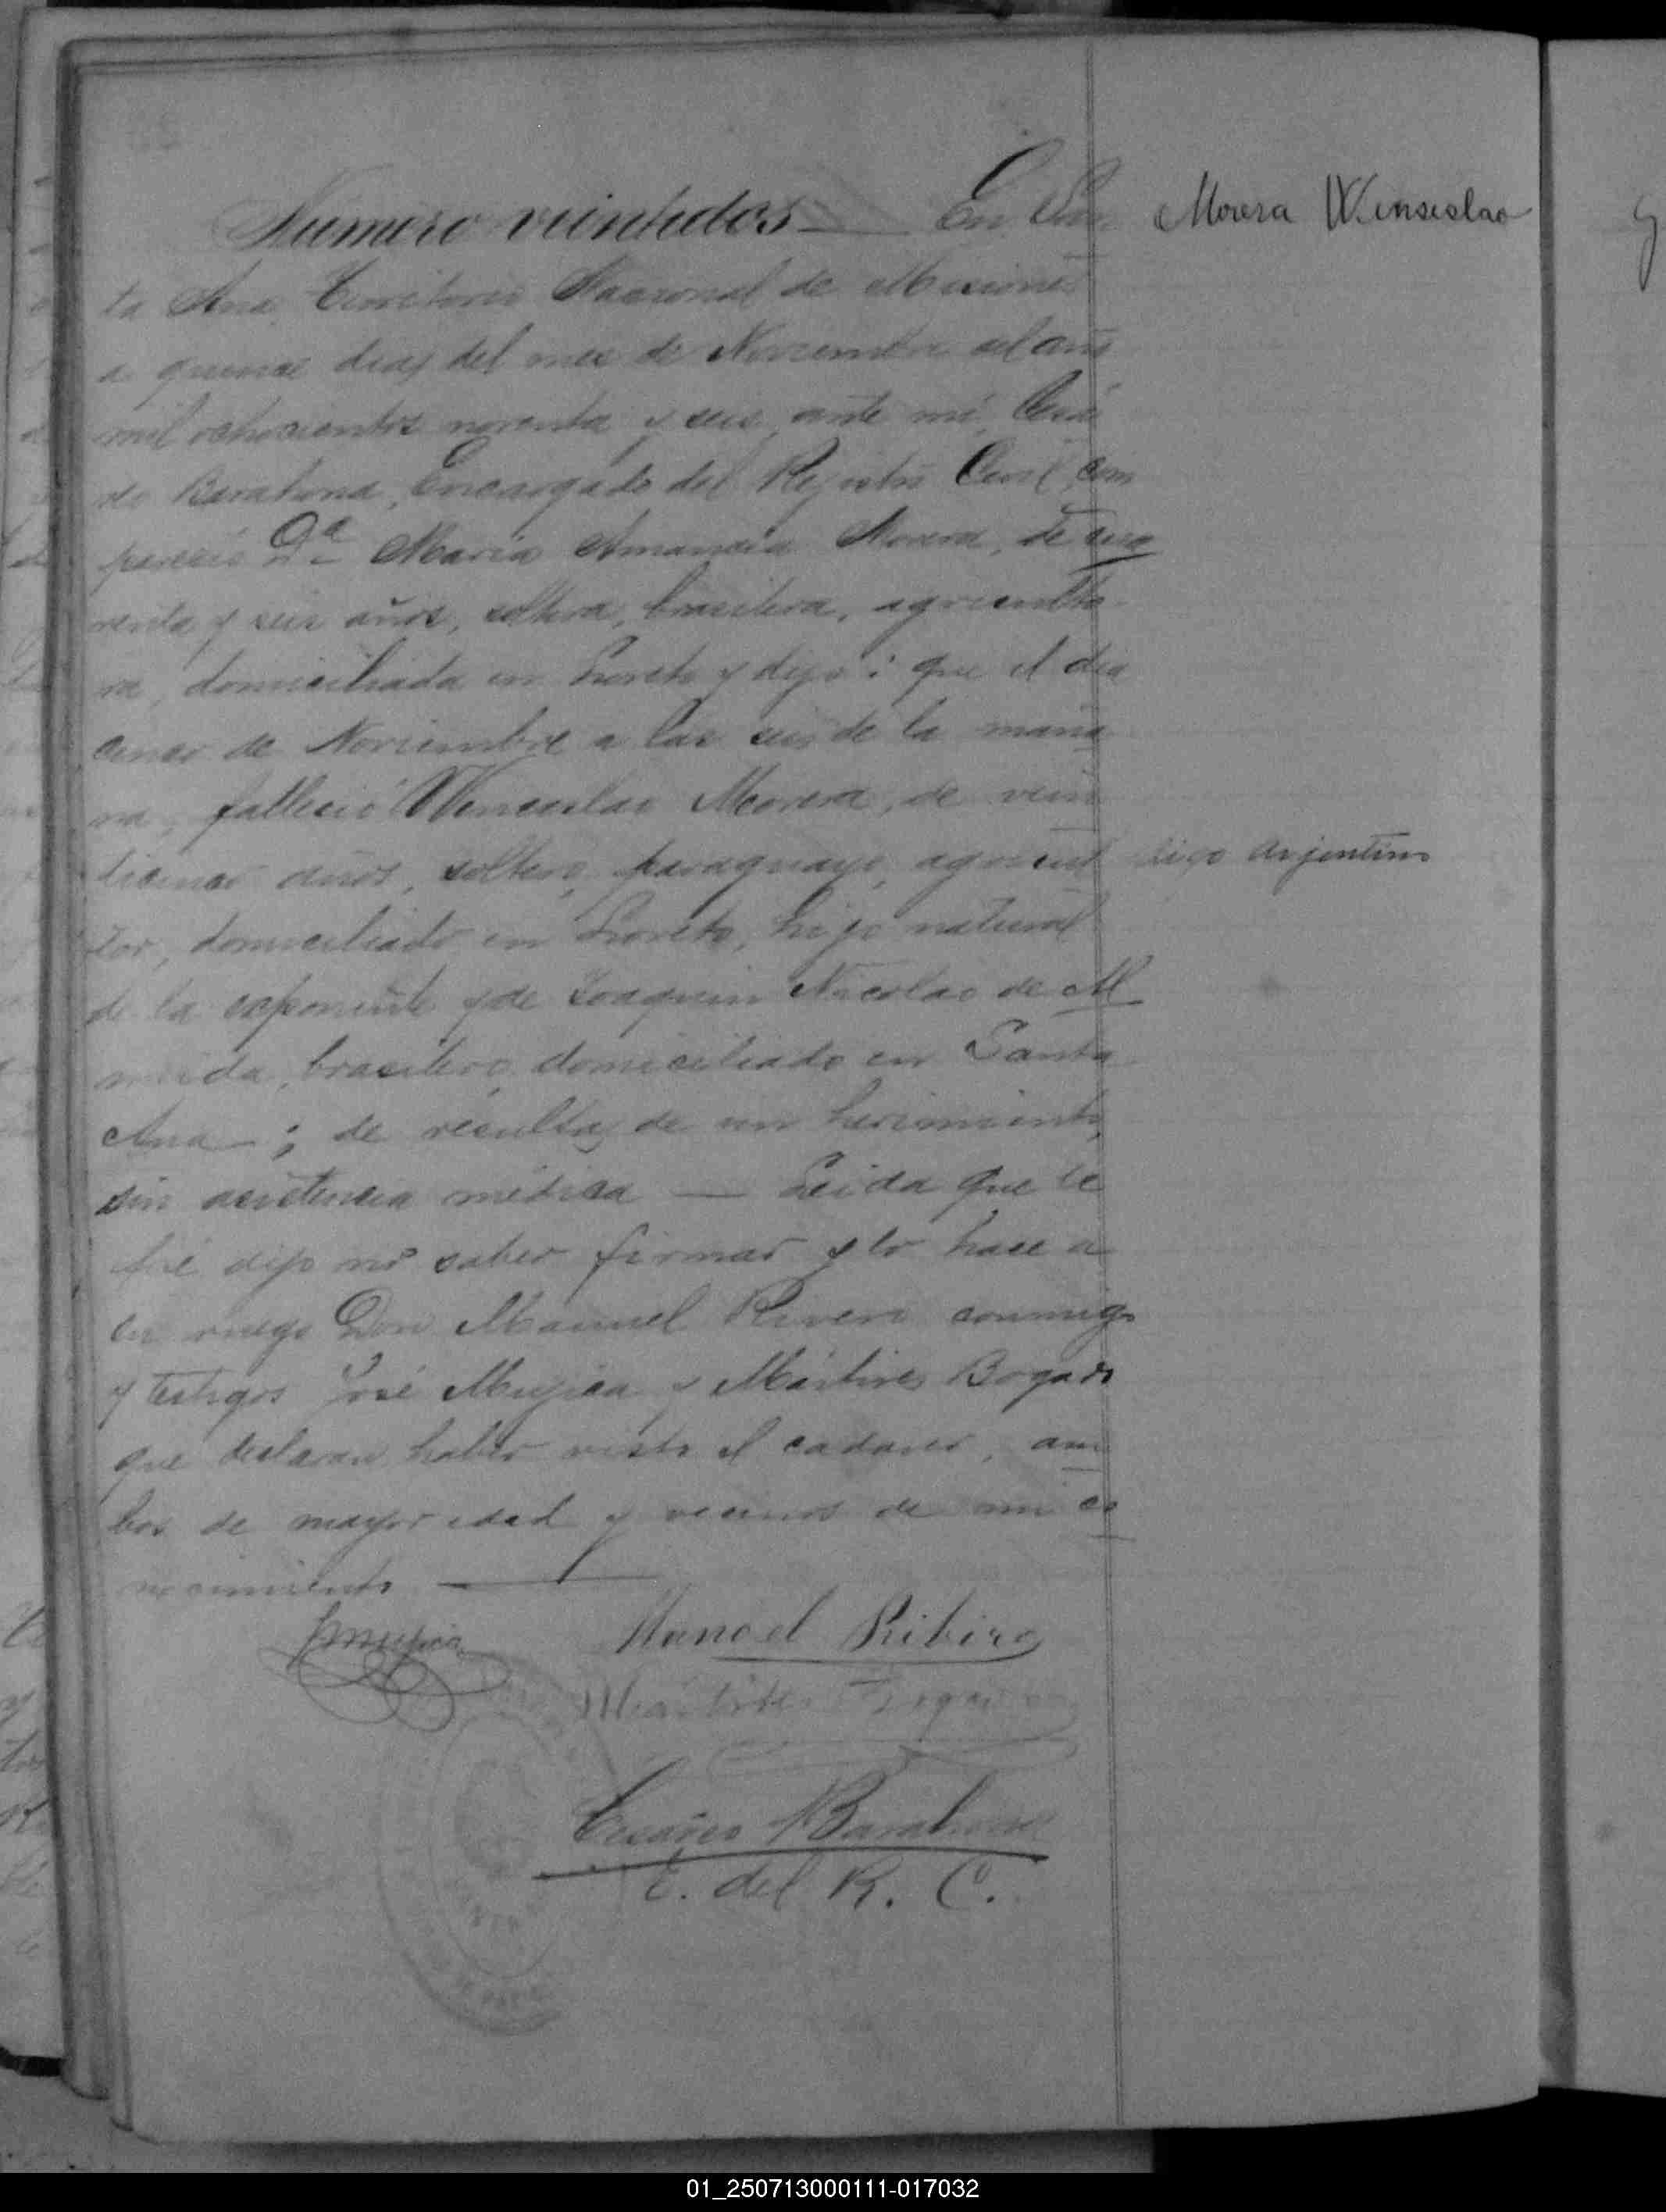 Numero veintidos — En San
Morera Wenseslao
ta Ana Territorio Nacional de Misiones
a quince dias del mes de Noviembre del año
mil ochocientos noventa y seis, ante mi,
Barahona, Encargado del Registro Civil, com
parecio Da Maria Amancia Morera, de
renta y seis años, soltera, brasilera, agriculto
ra, domiciliada en Loreto y dijo: que el dia
cinco de Noviembre a las seis de la maña
na, fallecio Wenceslao Morera, de vein
ticinco años, soltero, paraguayo, agricul
digo argentino
tor, domiciliado en Loreto, hijo natural
de la exponente y de Joaquin Nicolao de Al
meida, brasilero, domiciliado en Santa
Ana —; de resultas de un herimiento,
sin asistencia médica — Leida que le
fué dijo no saber firmar y lo hace a
su ruego Don Manuel Rivero conmigo
y testigos José Mujica y Mártires Bogado
que declaran haber visto el cadaver, am
bos de mayor edad y vecinos de mi co
nocimiento —
JMujica
Manoel Ribiro
Martires Bogado
Barahona
E. del R. C.
01_250713000111-017032